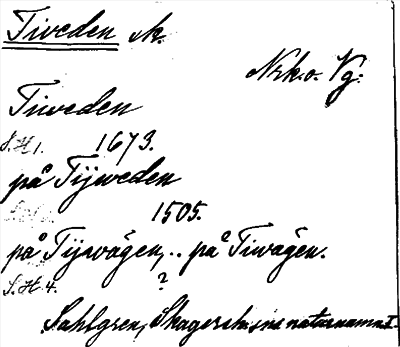 Tiveden sk.
Nrk. o. Vg.
Tiweden
S.H 1. 1673.
på Tijweden
1505.
på Tijsvägen, .. på Tiwägen.
S.H. 4. ?
Sahlgren, Skagersh. sns naturnamn I.